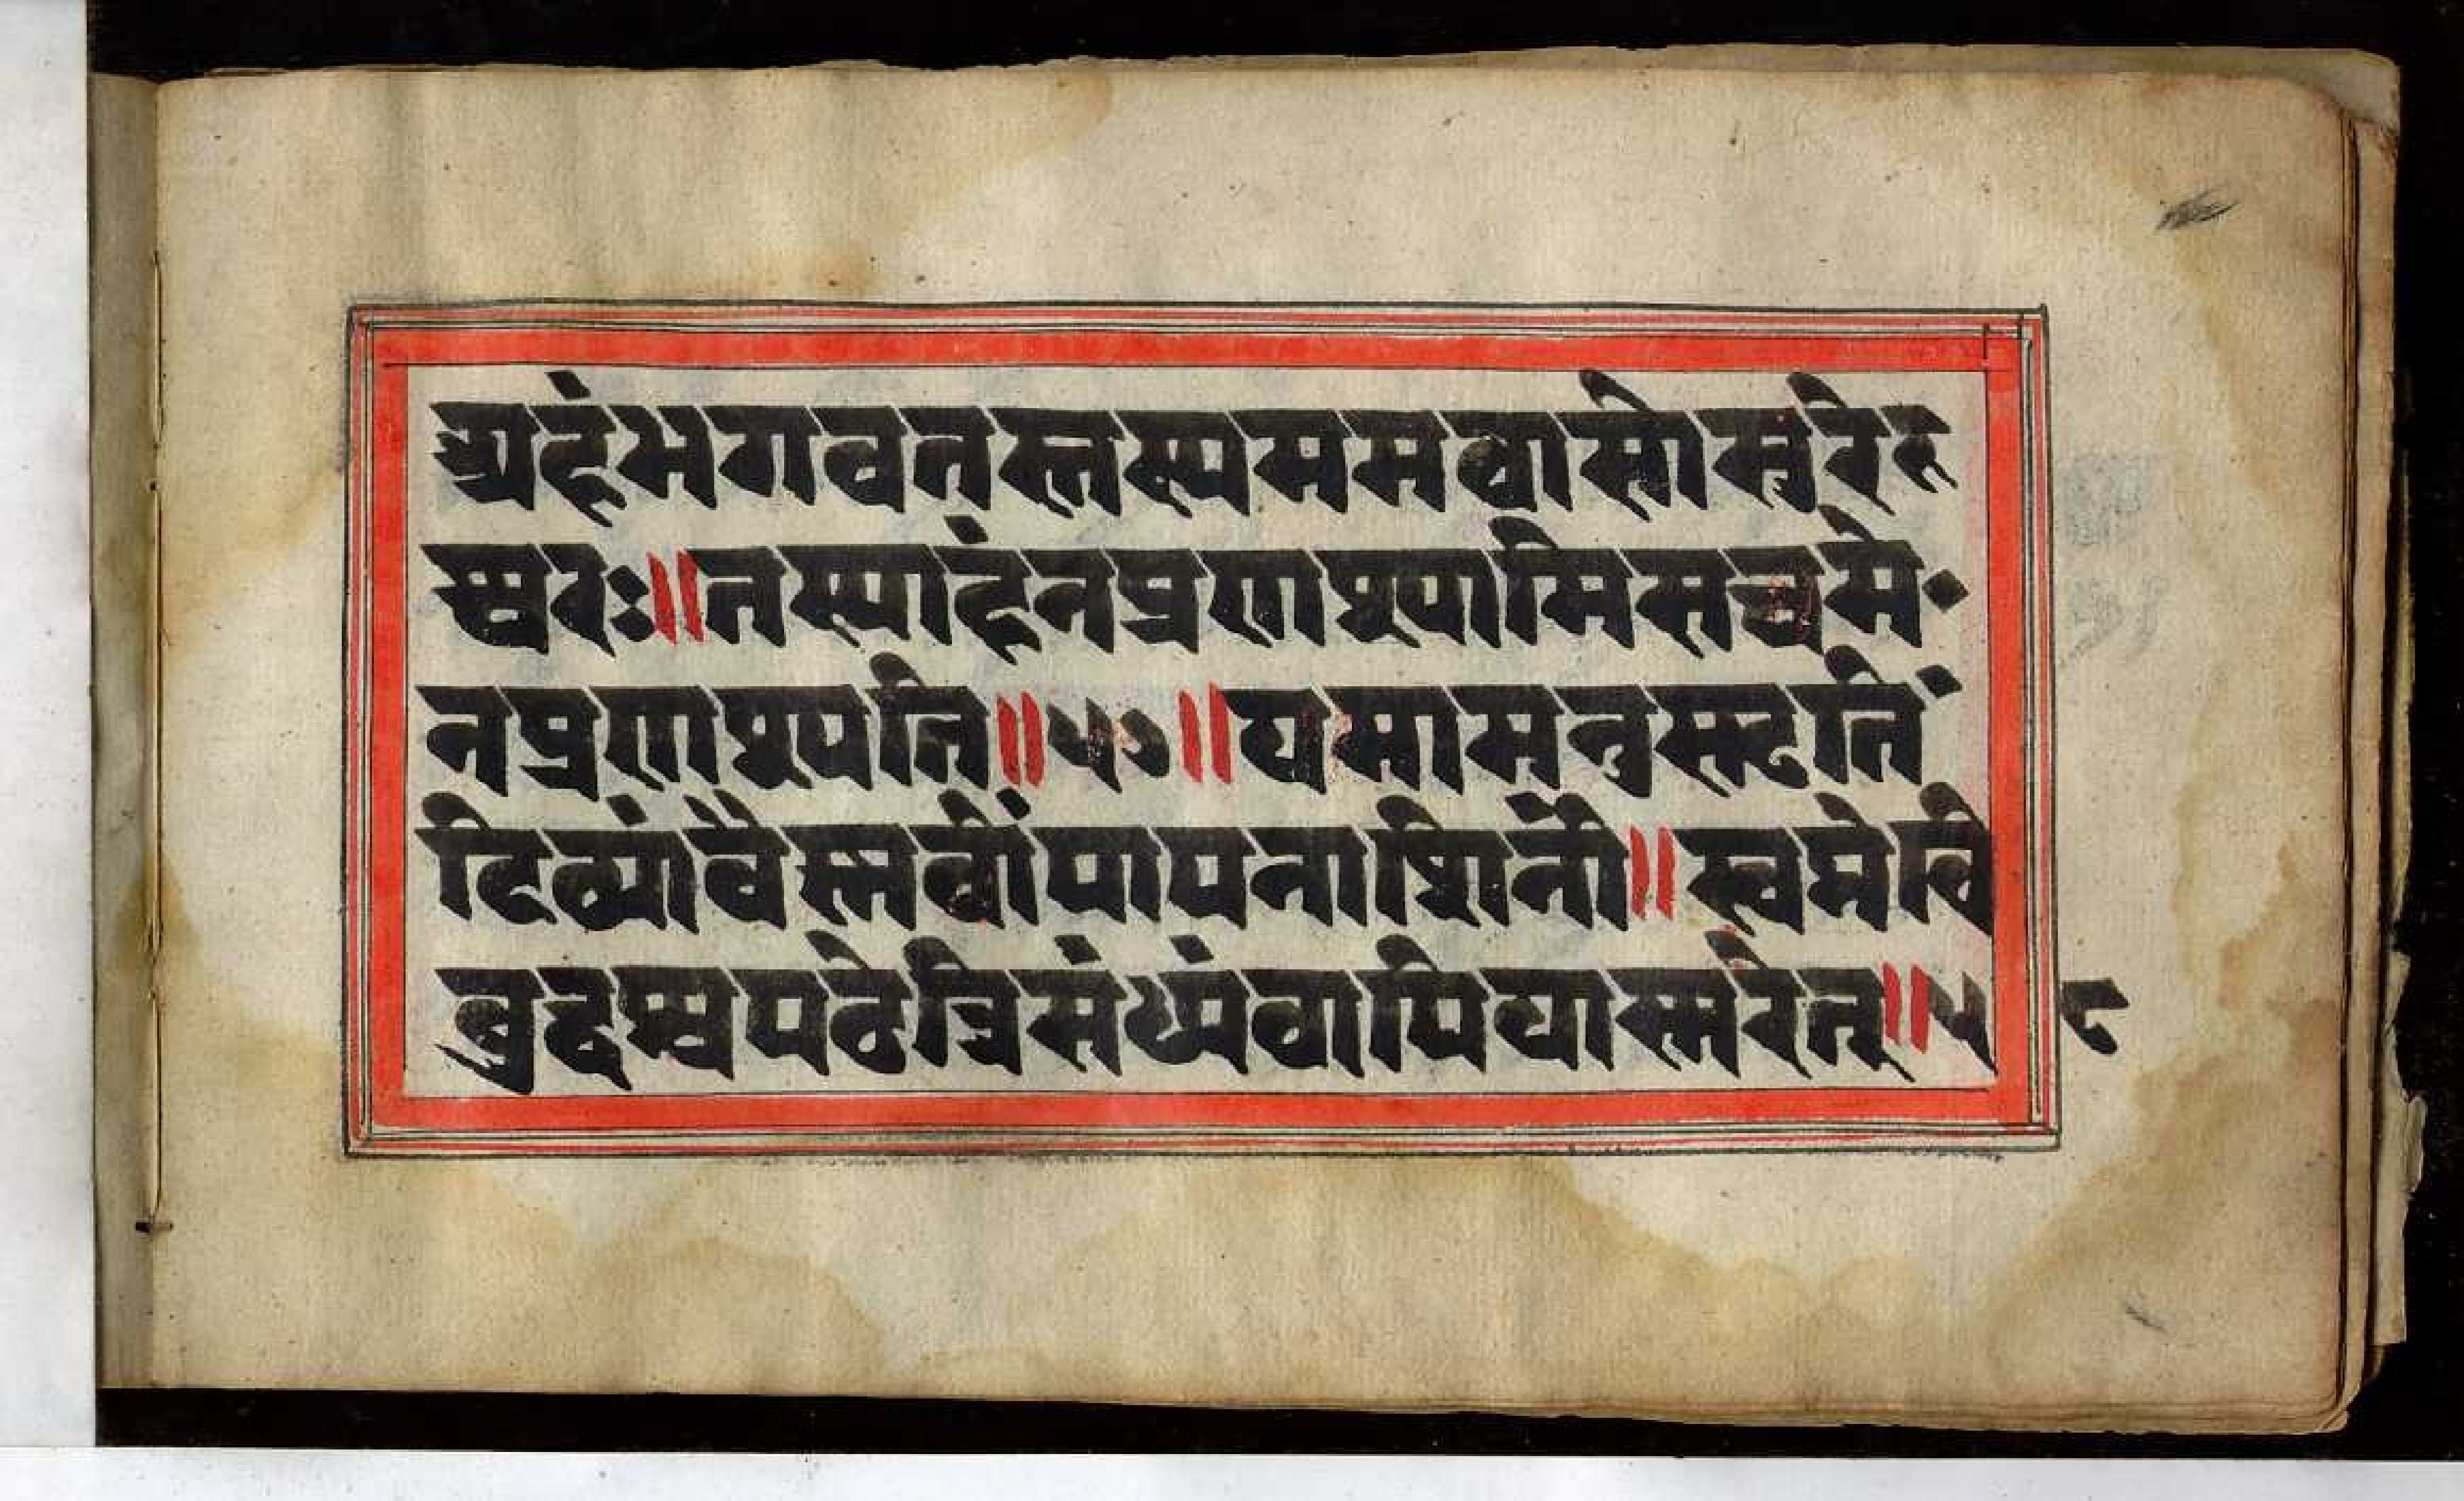 अहंभगवतस्तस्यममवासोसुरेर
स्वरः॥तस्याहंनप्रणश्यामिसचमे
नप्रणश्यति॥५७॥यमामनुस्टतिं
दिव्यांवैस्नवींपापनाशिनी॥स्वपंवि
बुद्दस्वपठेत्रिसंध्यंवापियास्मरेत्॥५८